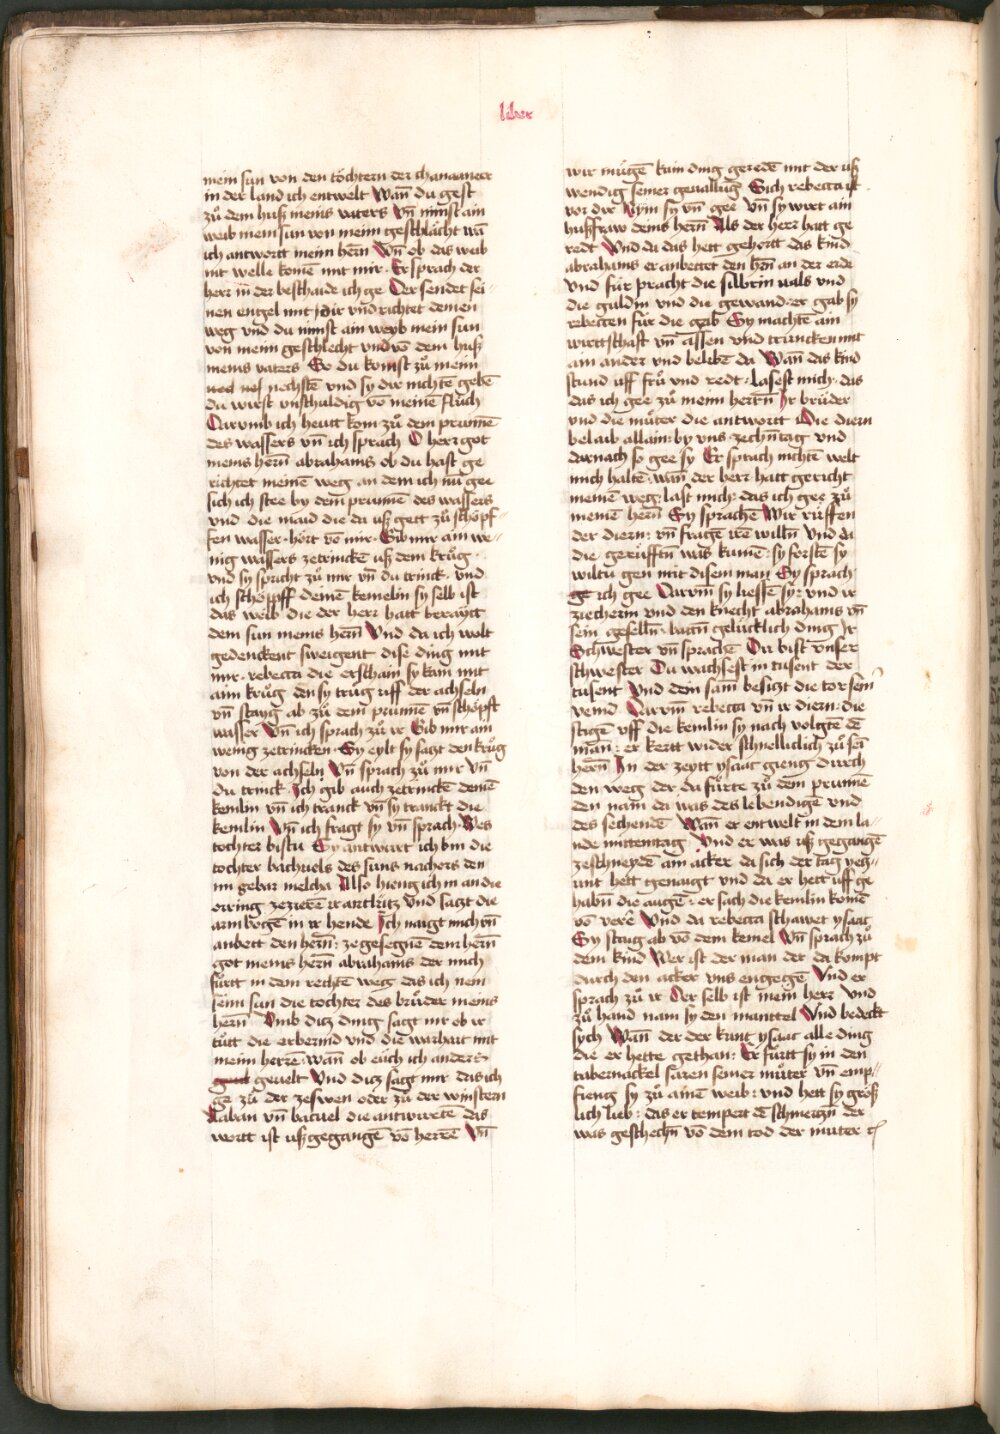 liber
mein sun von den töchtern der chananeer
in der land ich entwelt Wañ du gest
zů dem huß meins vaters Vñ nimst ain
weib mein sun von meim geschlächt vñ
ich antwortt meim herñ Vñ ob das weib
nit welle komē mit mir · Er sprach der
herr in̄ der beschaide ich ge Der sendet sei-
nen engel mit dir vnd richtet deinen
weg vnd du nimst ain weyb mein sun
von meim geschlecht vnd vō dem huß
meins vaters So du komst zů meim
nechstē vnd sy dir nichtē gebē
du wirst vnschuldig vō meinē flůch
Darumb ich heutt kom zů dem prunnē
des wassers vñ ich sprach O herr got
meins herñ abrahams ob du hast ge
richtet meinē weg an dem ich nū gee
sich ich stee by dem prunnē des wassers
vnd die maid die da uß gett zů schöpf-
fen wasser · hört vō mir · Gib mir ain we-
nig wassers zetrinckē uß dem krůg ·
vnd sy spricht zů mir vñ du trinck · vnd
ich schöpff deinē kemelin sy selb ist
das weib die der herr hatt berayt
dem sun meins herñ Vnd da ich wolt
gedenckent sweigent dise ding mit
mir · rebecca die erschain sy kam mit
aim krůg den sy trůg uff der achseln
vñ stayg ab zů dem prunnē vñ schöpft
wasser Vñ ich sprach zů ir Gib mir ain
wenig zetrincken · Sy eylt sy satzt den krůg
von der achseln Vñ sprach zů mir vñ
du trinck Ich gib auch zetrinckē deinē
kemlin vñ ich tranck vñ sy tranckt die
kemlin Vñ ich fragt sy vñ sprach · Wes
tochter bistu Sy antwurt ich bin die
tochter bachuels des suns nachors den
im gebar melcha Also hieng ich in an die
orring zezierē ir antlütz vnd satzt die
armbogē in ir hende Ich naigt mich vñ
anbett den herñ : zegesegnē dem herñ
got meins herñ abrahams der mich
fürtt in dem rechtē weg das ich nem
seim sun die tochter des brůder meins
herñ Vmb ditz ding sagt mir ob ir
tůtt die erbermd vnd die warhait mit
meim herrē · wañ ob eüch ich anders
geuelt Vnd ditz sagt mir das ich
ge zů der zeswen oder zů der winstern
Laban vñ batuel die antwurtē das
wortt ist ußgegangē vō herrē Vñ
wir mügē kain ding geredē mit der uß
wendig seiner geuallūg Sich rebecca ist
vor dir Nym sy vñ gee Vñ sy wirt ain
hußfraw deins herñ Als der herr hatt ge
redt Vnd da das hett gehortt das kind
abrahams er anbettet den herñ an der erde
Vnd für pracht die silbrin uals vnd
die guldin vnd die gewand · er gab sy
rebeccen für die gab Sy machtē ain
wirttschaft vñ assen vnd truncken mit
ain ander vnd belibē da Wañ das kind
stund uff frů vnd redt · Lasest mich · das
das ich gee zů meim herrñ Ir brüder
vnd die můter die antwortt Die diern
belaib allain by vns · zechñ tag vnd
darnach so gee sy Er sprach nichtē welt
mich haltē · wañ der herr hatt gericht
meinē weg · lasst mich · das ich gee zů
meinē herñ Sy sprachē Wir rüffen
der diern : vñ fragē irē willñ Vnd da
die gerüfftñ was kumē · sy forstē sy
wiltu gen mit disem man Sy sprach
ich gee Darum̄ sy liessē sy : vnd ir
ziecherin vnd den knecht abrahams vñ
sein gesellñ · battñ gelücklich ding Ir
Schwester vñ sprachē Du bist vnser
schwester Du wachsest in tusent der
tusent Vnd dein sam̄ besitzt die tor seiner
veind Darum̄ rebecca vñ ir diern · die
stigē uff die kemlin sy nach volgtē dē
man̄ : er kertt wider schnelliclich zů seī
herñ In der zeytt ysaac gieng durch
den weg der da fürtt zů dem prunnē
den nam̄ da was des lebendigē vnd
des sechendē Wañ er entwelt in dem la-
nde mittemtag Vnd er was uß gegangē
zeschneydē am acker da sich der tag yetz-
unt hett genaigt vnd da er hett uff ge
habñ die augē : er sach die kemlin komē
vō verē Vnd da rebecca schawet ysaac
Sy staig ab vō dem kemel Vñ sprach zů
dem kind Wer ist der man der da kompt
durch den acker vns engegē Vnd er
sprach zů ir Der selb ist mein herr Vnd
zů hand nam sy den manttel Vnd bedeckt
sych Wañ der der kunt ysaac alle ding
die er hette gethan : Er fürtt sy in den
tabernackel saren seiner můter vñ emp-
fieng sy zů ainē weib : vnd hett sy größ
lich lieb : das er tempert dē schmertzñ der
was geschechñ vō dem tod der můter